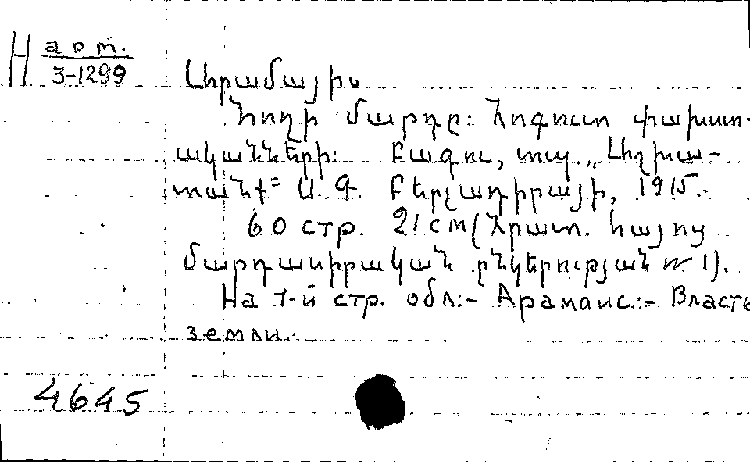 Н арм.
3-1299
Արամայիս
Հողի մարդը: Հօգուտ փախստ-
ականների: Բագու, տպ. „Աշխա-
տանք" Ա. Գ. Բեկլադիրայի, 1915.
60 стр. 21 см (Հրատ. հայոց
մարդասիրական ընկերության № 1).
На 1-й стр. обл.:- Арамаис.:- Власть
земли.
4645